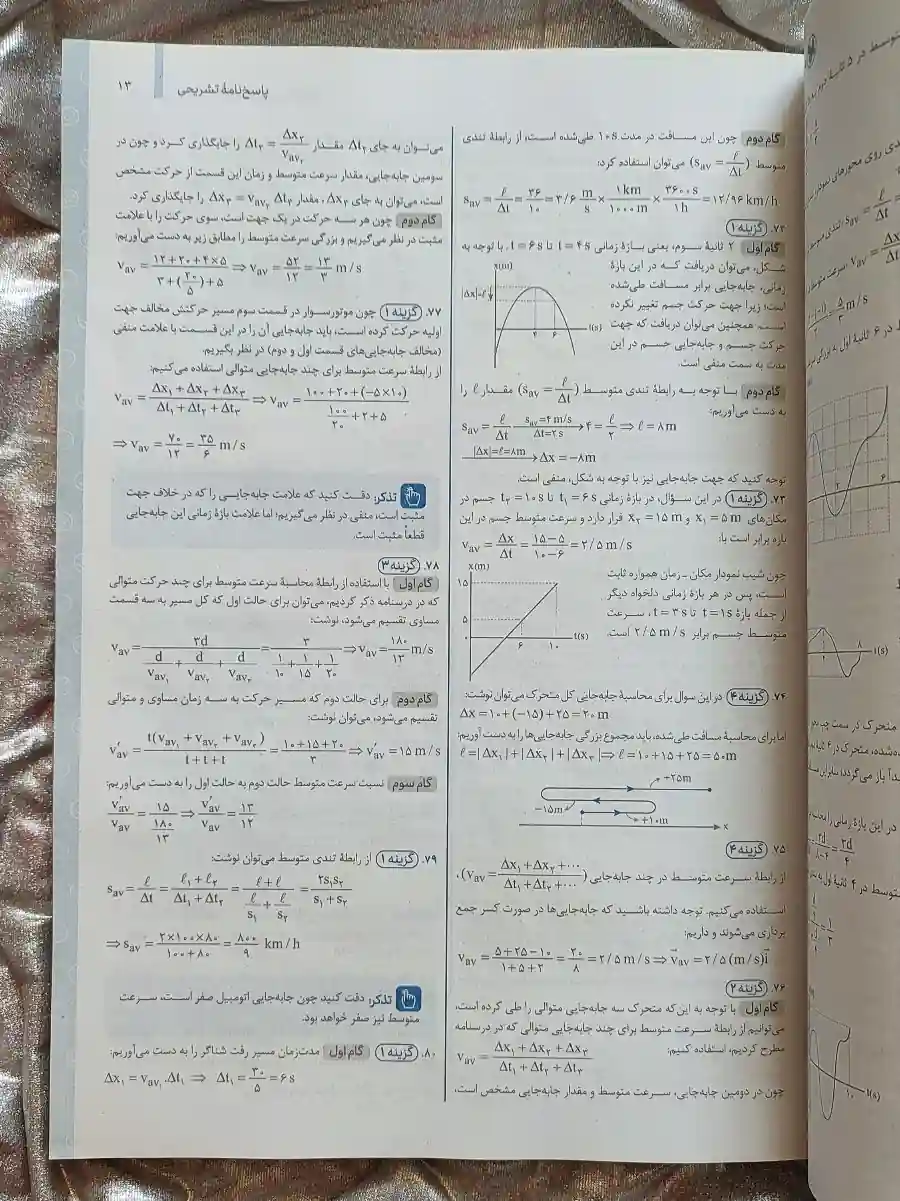 پاسخ‌نامهٔ تشریحی
۱۳
گام دوم چون این مسافت در مدت ۱۰s طی‌شده است، از رابطهٔ تندی
متوسط (s_av = ℓ/Δt) می‌توان استفاده کرد:
s_av = ℓ/Δt = ۳۶/۱۰ = ۳/۶ m/s × ۱km/۱۰۰۰m × ۳۶۰۰s/۱h = ۱۲/۹۶ km/h
۷۲. گزینهٔ ۱
گام اول ۲ ثانیهٔ سوم، یعنی بازهٔ زمانی t = ۴s تا t = ۶s. با توجه به
شکل، می‌توان دریافت که در این بازهٔ
زمانی، جابه‌جایی برابر مسافت طی‌شده
است؛ زیرا جهت حرکت جسم تغییر نکرده
است. همچنین می‌توان دریافت که جهت
حرکت جسم و جابه‌جایی جسم در این
مدت به سمت منفی است.
x(m)
|Δx|=ℓ
۴ ۶
t(s)
گام دوم با توجه به رابطهٔ تندی متوسط (s_av = ℓ/Δt) مقدار ℓ را
به دست می‌آوریم:
s_av = ℓ/Δt (s_av=۴ m/s, Δt=۲s)→ ۴ = ℓ/۲ ⇒ ℓ = ۸m
(|Δx|=ℓ=۸m)→ Δx = −۸m
توجه کنید که جهت جابه‌جایی نیز با توجه به شکل، منفی است.
۷۳. گزینهٔ ۱ در این سؤال، در بازهٔ زمانی t₁ = ۶s تا t₂ = ۱۰s جسم در
مکان‌های x₁ = ۵m و x₂ = ۱۵m قرار دارد و سرعت متوسط جسم در این
بازه برابر است با:
v_av = Δx/Δt = (۱۵−۵)/(۱۰−۶) = ۲/۵ m/s
چون شیب نمودار مکان ـ زمان همواره ثابت
است، پس در هر بازهٔ زمانی دلخواه دیگر
از جمله بازهٔ t = ۱s تا t = ۳s، سرعت
متوسط جسم برابر ۲/۵ m/s است.
x(m)
۱۵
۵
۰
۶ ۱۰
t(s)
۷۴. گزینهٔ ۴ در این سوال برای محاسبهٔ جابه‌جایی کل متحرک می‌توان نوشت:
Δx = ۱۰+(−۱۵)+۲۵ = ۲۰m
اما برای محاسبهٔ مسافت طی‌شده، باید مجموع بزرگی جابه‌جایی‌ها را به دست آوریم:
ℓ = |Δx₁|+|Δx₂|+|Δx₃| ⇒ ℓ = ۱۰+۱۵+۲۵ = ۵۰m
+۲۵m
−۱۵m
+۱۰m
x
۷۵. گزینهٔ ۴
از رابطهٔ سرعت متوسط در چند جابه‌جایی (v_av = (Δx₁+Δx₂+⋯)/(Δt₁+Δt₂+⋯))،
استفاده می‌کنیم. توجه داشته باشید که جابه‌جایی‌ها در صورت کسر جمع
برداری می‌شوند و داریم:
v_av = (۵+۲۵−۱۰)/(۱+۵+۲) = ۲۰/۸ = ۲/۵ m/s ⇒ v⃗_av = ۲/۵ (m/s)i⃗
۷۶. گزینهٔ ۲
گام اول با توجه به این‌که متحرک سه جابه‌جایی متوالی را طی کرده است،
می‌توانیم از رابطهٔ سرعت متوسط برای چند جابه‌جایی متوالی که در درسنامه
مطرح کردیم، استفاده کنیم:
v_av = (Δx₁+Δx₂+Δx₃)/(Δt₁+Δt₂+Δt₃)
چون در دومین جابه‌جایی، سرعت متوسط و مقدار جابه‌جایی مشخص است،
می‌توان به جای Δt₂ مقدار Δt₂ = Δx₂/v_av₂ را جایگذاری کرد و چون در
سومین جابه‌جایی، مقدار سرعت متوسط و زمان این قسمت از حرکت مشخص
است، می‌توان به جای Δx₃، مقدار Δx₃ = v_av₃ Δt₃ را جایگذاری کرد.
گام دوم چون هر سه حرکت در یک جهت است، سوی حرکت را با علامت
مثبت در نظر می‌گیریم و بزرگی سرعت متوسط را مطابق زیر به دست می‌آوریم:
v_av = (۱۲+۲۰+۴×۵)/(۳+(۲۰/۵)+۵) ⇒ v_av = ۵۲/۱۲ = ۱۳/۳ m/s
۷۷. گزینهٔ ۱ چون موتورسوار در قسمت سوم مسیر حرکتش مخالف جهت
اولیه حرکت کرده است، باید جابه‌جایی آن را در این قسمت با علامت منفی
(مخالف جابه‌جایی‌های قسمت اول و دوم) در نظر بگیریم.
از رابطهٔ سرعت متوسط برای چند جابه‌جایی متوالی استفاده می‌کنیم:
v_av = (Δx₁+Δx₂+Δx₃)/(Δt₁+Δt₂+Δt₃) ⇒ v_av = (۱۰۰+۲۰+(−۵×۱۰))/(۱۰۰/۲۰+۲+۵)
⇒ v_av = ۷۰/۱۲ = ۳۵/۶ m/s
تذکر: دقت کنید که علامت جابه‌جایی را که در خلاف جهت
مثبت است، منفی در نظر می‌گیریم؛ اما علامت بازهٔ زمانی این جابه‌جایی
قطعاً مثبت است.
۷۸. گزینهٔ ۳
گام اول با استفاده از رابطهٔ محاسبهٔ سرعت متوسط برای چند حرکت متوالی
که در درسنامه ذکر کردیم، می‌توان برای حالت اول که کل مسیر به سه قسمت
مساوی تقسیم می‌شود، نوشت:
v_av = ۳d/(d/v_av₁ + d/v_av₂ + d/v_av₃) = ۳/(۱/۱۰ + ۱/۱۵ + ۱/۲۰) ⇒ v_av = ۱۸۰/۱۳ m/s
گام دوم برای حالت دوم که مسیر حرکت به سه زمان مساوی و متوالی
تقسیم می‌شود، می‌توان نوشت:
v′_av = t(v_av₁ + v_av₂ + v_av₃)/(t+t+t) = (۱۰+۱۵+۲۰)/۳ ⇒ v′_av = ۱۵ m/s
گام سوم نسبت سرعت متوسط حالت دوم به حالت اول را به دست می‌آوریم:
v′_av/v_av = ۱۵/(۱۸۰/۱۳) ⇒ v′_av/v_av = ۱۳/۱۲
۷۹. گزینهٔ ۱ از رابطهٔ تندی متوسط می‌توان نوشت:
s_av = ℓ/Δt = (ℓ₁+ℓ₂)/(Δt₁+Δt₂) = (ℓ+ℓ)/(ℓ/s₁ + ℓ/s₂) = ۲s₁s₂/(s₁+s₂)
⇒ s_av = (۲×۱۰۰×۸۰)/(۱۰۰+۸۰) = ۸۰۰/۹ km/h
تذکر: دقت کنید چون جابه‌جایی اتومبیل صفر است، سرعت
متوسط نیز صفر خواهد بود.
۸۰. گزینهٔ ۱ گام اول مدت‌زمان مسیر رفت شناگر را به دست می‌آوریم:
Δx₁ = v_av₁.Δt₁ ⇒ Δt₁ = ۳۰/۵ = ۶s